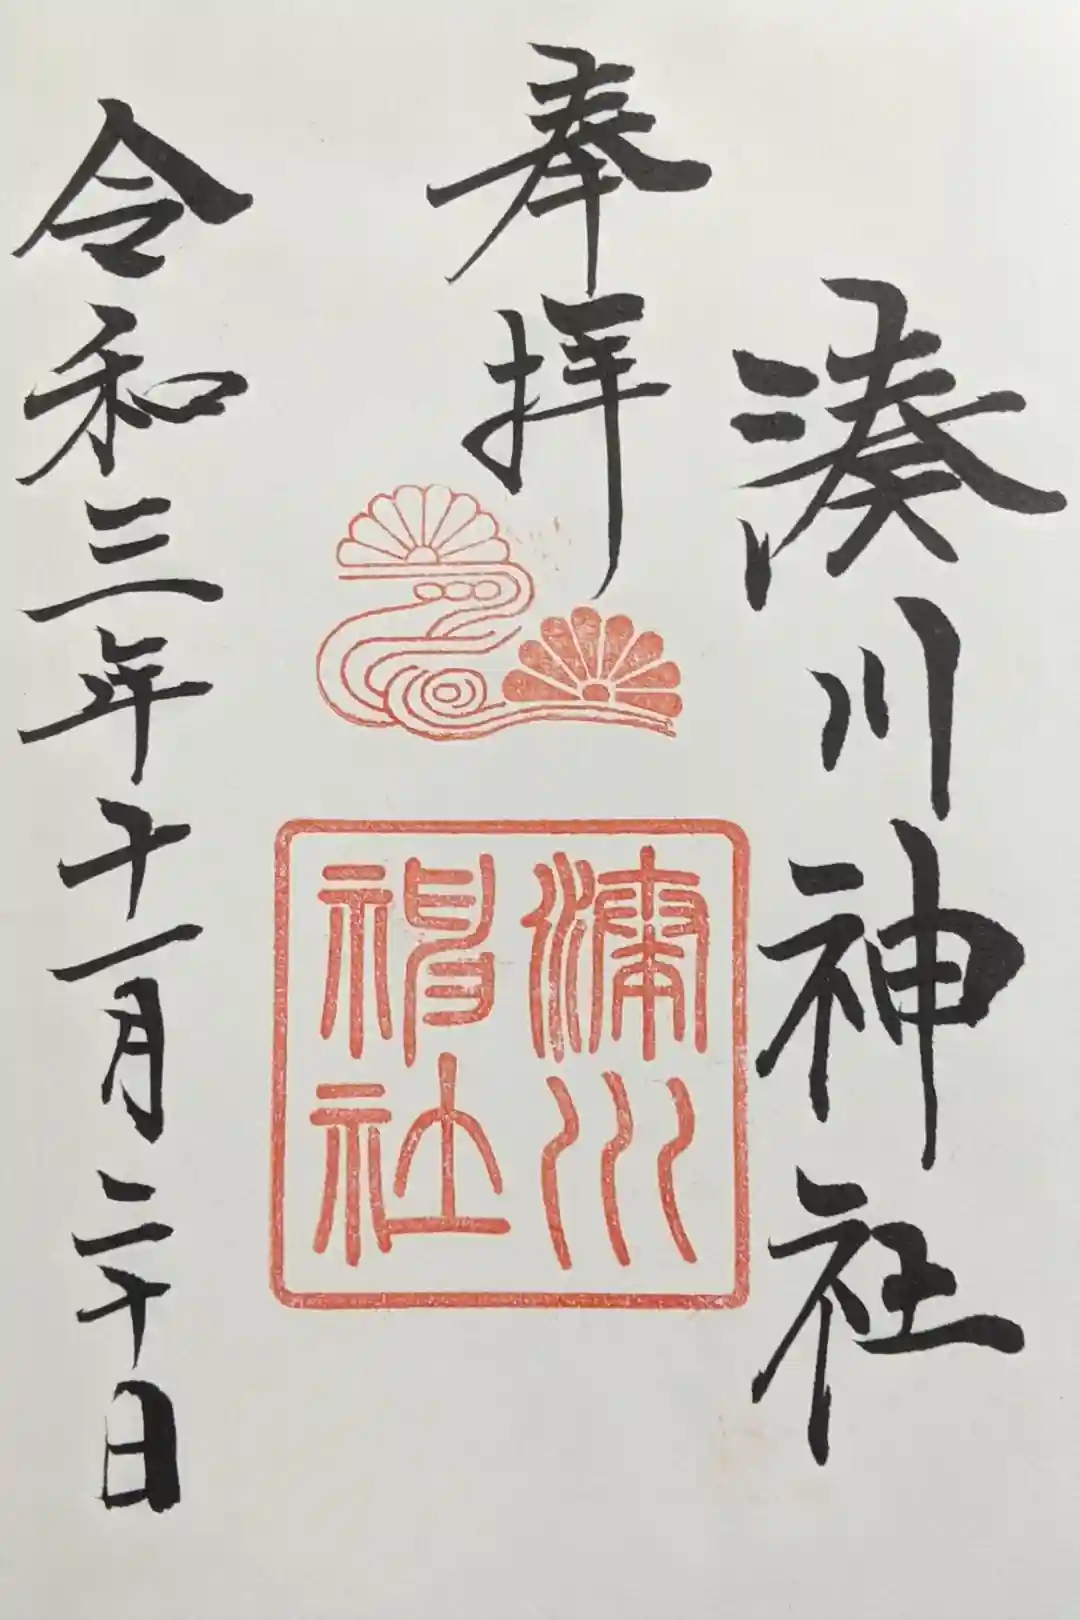 湊川神社
奉拝
湊川
神社
令和三年十一月二十日